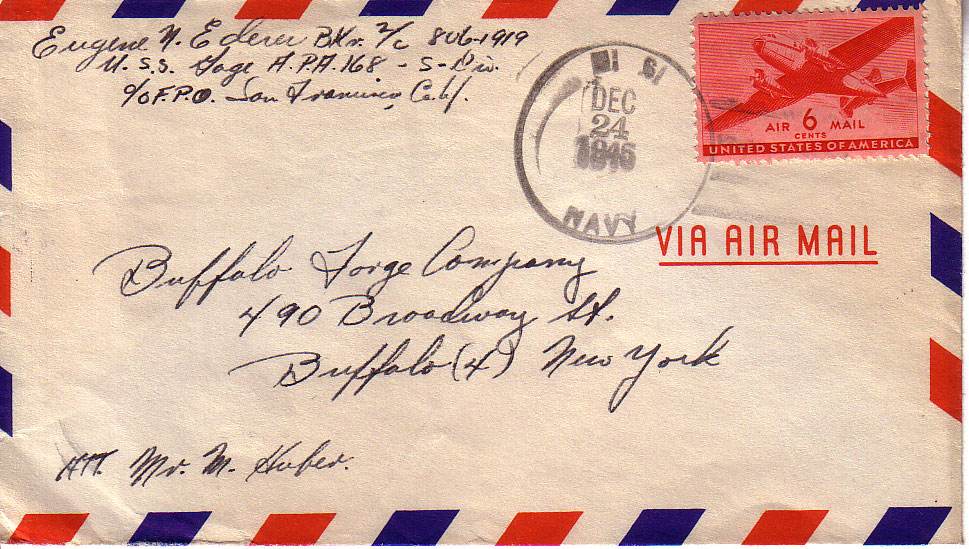 Eugene N. Ederer BKr. 2/c 806-1919
U.S.S. Gage A.P.A. 168 - S-Div.
c/o F.P.O. San Francisco, Calif.
DEC
24
1945
NAVY
AIR 6 MAIL
CENTS
UNITED STATES OF AMERICA
VIA AIR MAIL
Buffalo Forge Company
490 Broadway St.
Buffalo (4) New York
ATT. Mr. M. Huber.